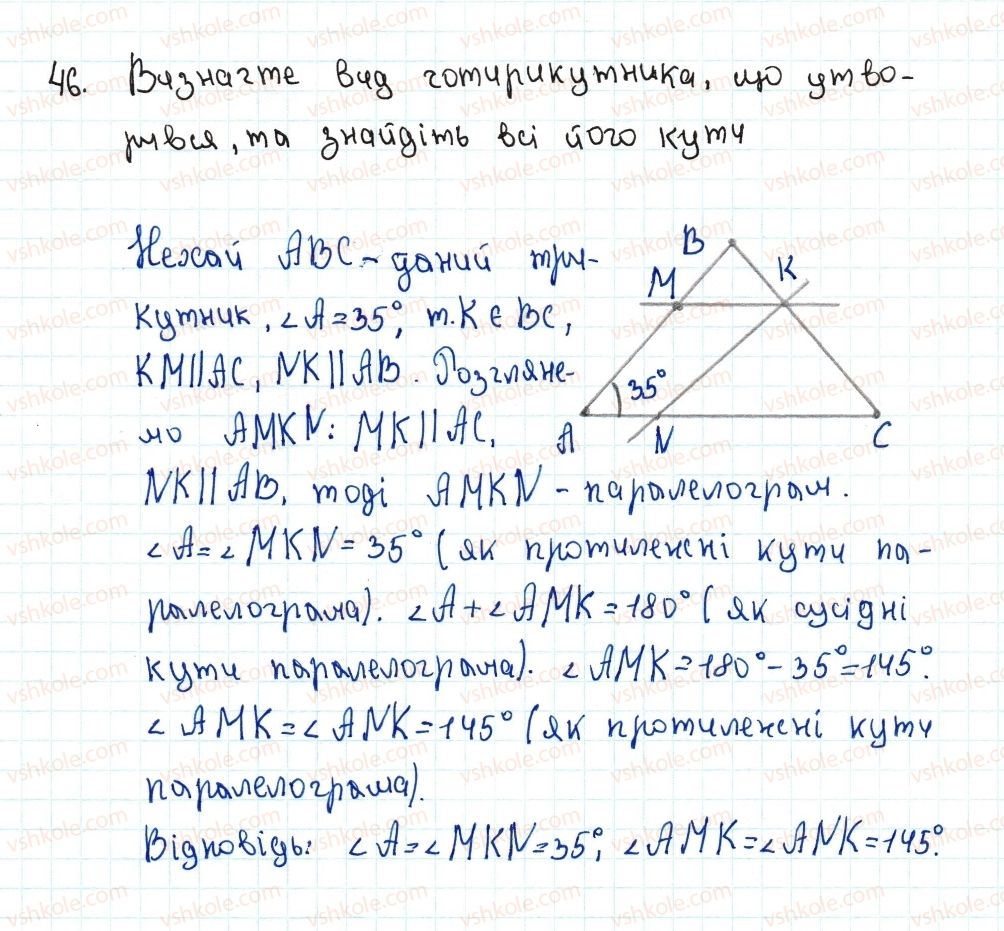 46. Визначте вид чотирикутника, що утво-
рився, та знайдіть всі його кути
Нехай ABC - даний три-
кутник, ∠A = 35°, т. K ∈ BC,
KM || AC, NK || AB. Розгляне-
мо AMKN: MK || AC,
NK || AB, тоді AMKN - паралелограм.
∠A = ∠MKN = 35° (як протилежні кути па-
ралелограма). ∠A + ∠AMK = 180° (як сусідні
кути паралелограма). ∠AMK = 180° - 35° = 145°.
∠AMK = ∠ANK = 145° (як протилежні кути
паралелограма).
Відповідь: ∠A = ∠MKN = 35°, ∠AMK = ∠ANK = 145°.
B
M
K
35°
A
N
C
vshkole.com